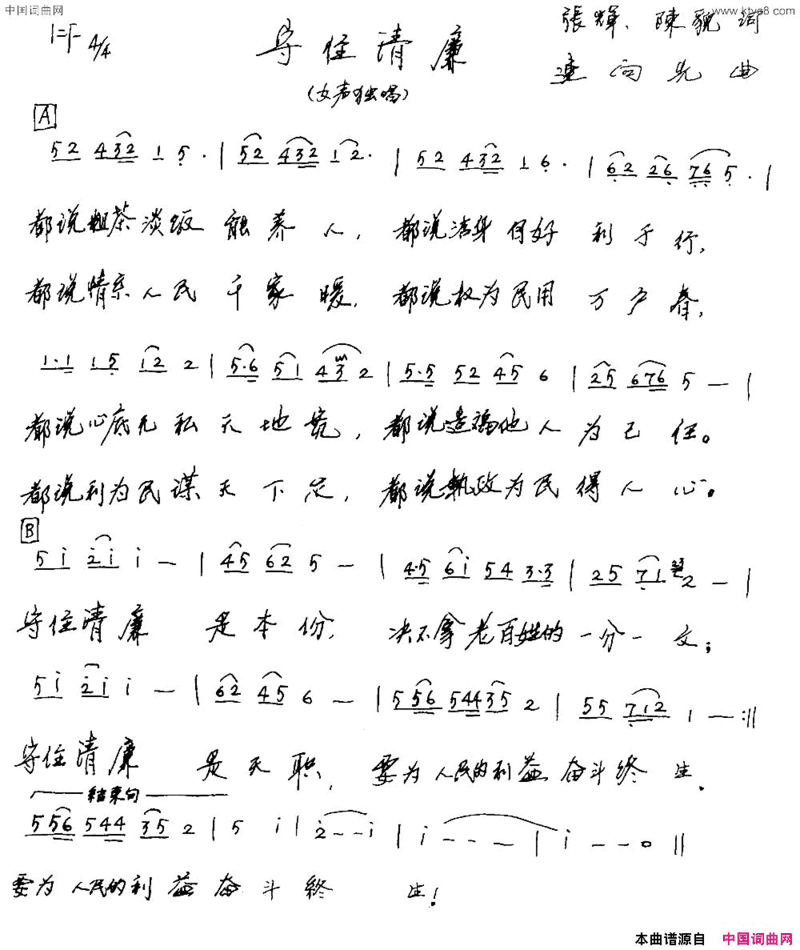 中国词曲网
www.ktvc8.com
1=F 4/4
守住清廉
(女声独唱)
張輝、陳貌词
連向先曲
A
52 432 1 5· | 52 432 12· | 52 432 1 6· | 62 26 76 5· |
都说粗茶淡饭能养人，都说洁身自好利于行，
都说情系人民千家暖，都说权为民用万户春，
1·1 15 12 2 | 5·6 51 43 2 | 5·5 52 45 6 | 25 676 5 — |
都说心底无私天地宽，都说造福他人为己任。
都说利为民谋天下定，都说執政为民得人心。
B
5i ii i — | 45 62 5 — | 4·5 6i 54 3·3 | 25 71 2 — |
守住清廉是本份，决不拿老百姓的一分一文；
5i 2i i — | 62 45 6 — | 556 544 35 2 | 55 712 1 — :||
守住清廉是天职，要为人民的利益奋斗终生．
结束句
556 544 35 2 | 5 i | 2 - - i | i - - - | i - - 0 ||
要为人民的利益奋斗終生！
本曲谱源自 中国词曲网